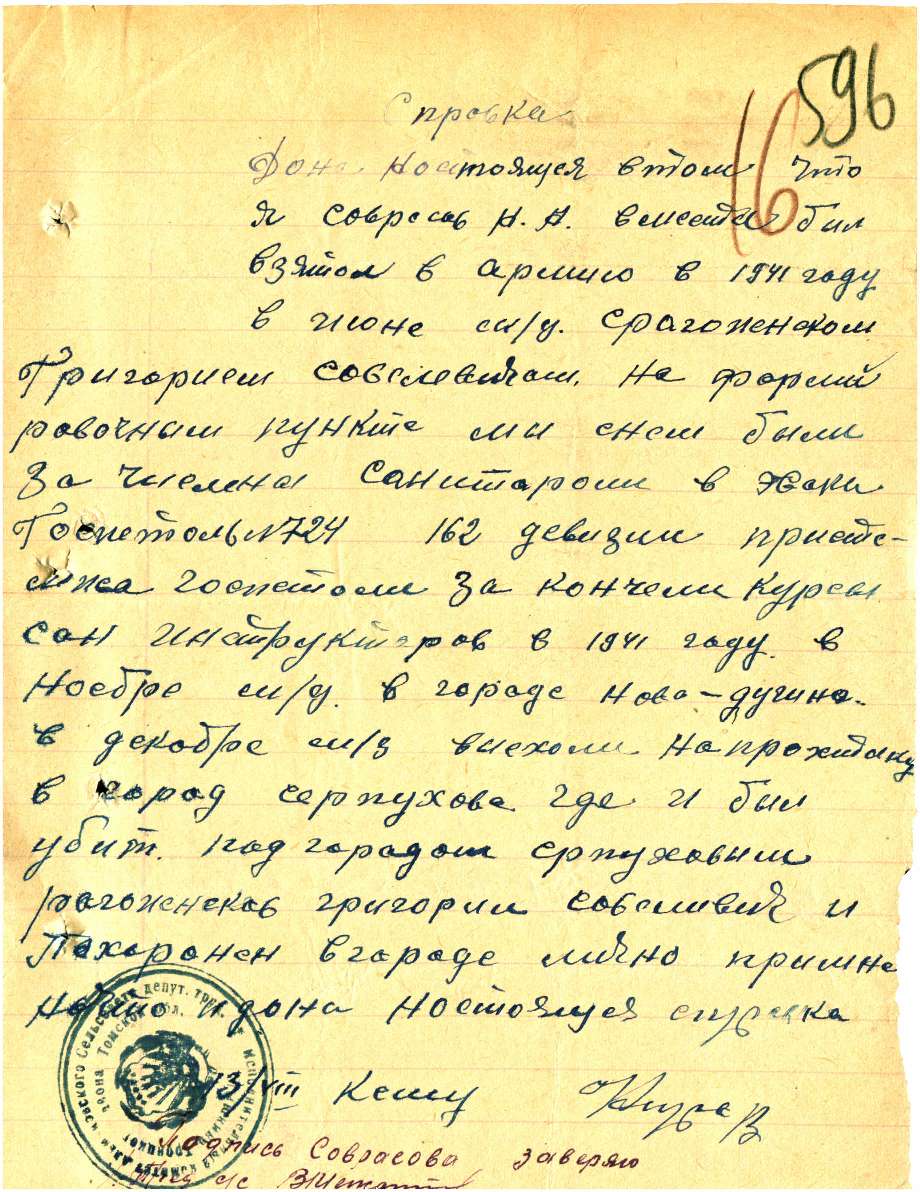 596
16
Справка
Дона Ностоящея втом что
я Совросов Н. Н. вместе был
взятом в армию в 1941 году
в июне м/ц. срагоженском
Григорием Совелевичам. На форми
ровочным пункте мы снем были
За числены Санитарами в Эваки
Госпетоль №724 162 девизии приэтс-
мжа госпетоли За кончели Курсы
сан инструкторов в 1941 году. в
Ноебре м/ц. в городе Нова-дугино.
в декобре м/ц выехоли На
в город серпухова где и был
убит. под городом серпуховым
рогоженсков григории совеливич и
Похоронен вгороде лично примне
и дона Ностоящея справка
13/VIII Кешу
Подпись Соврасова заверяю
Пред с/с